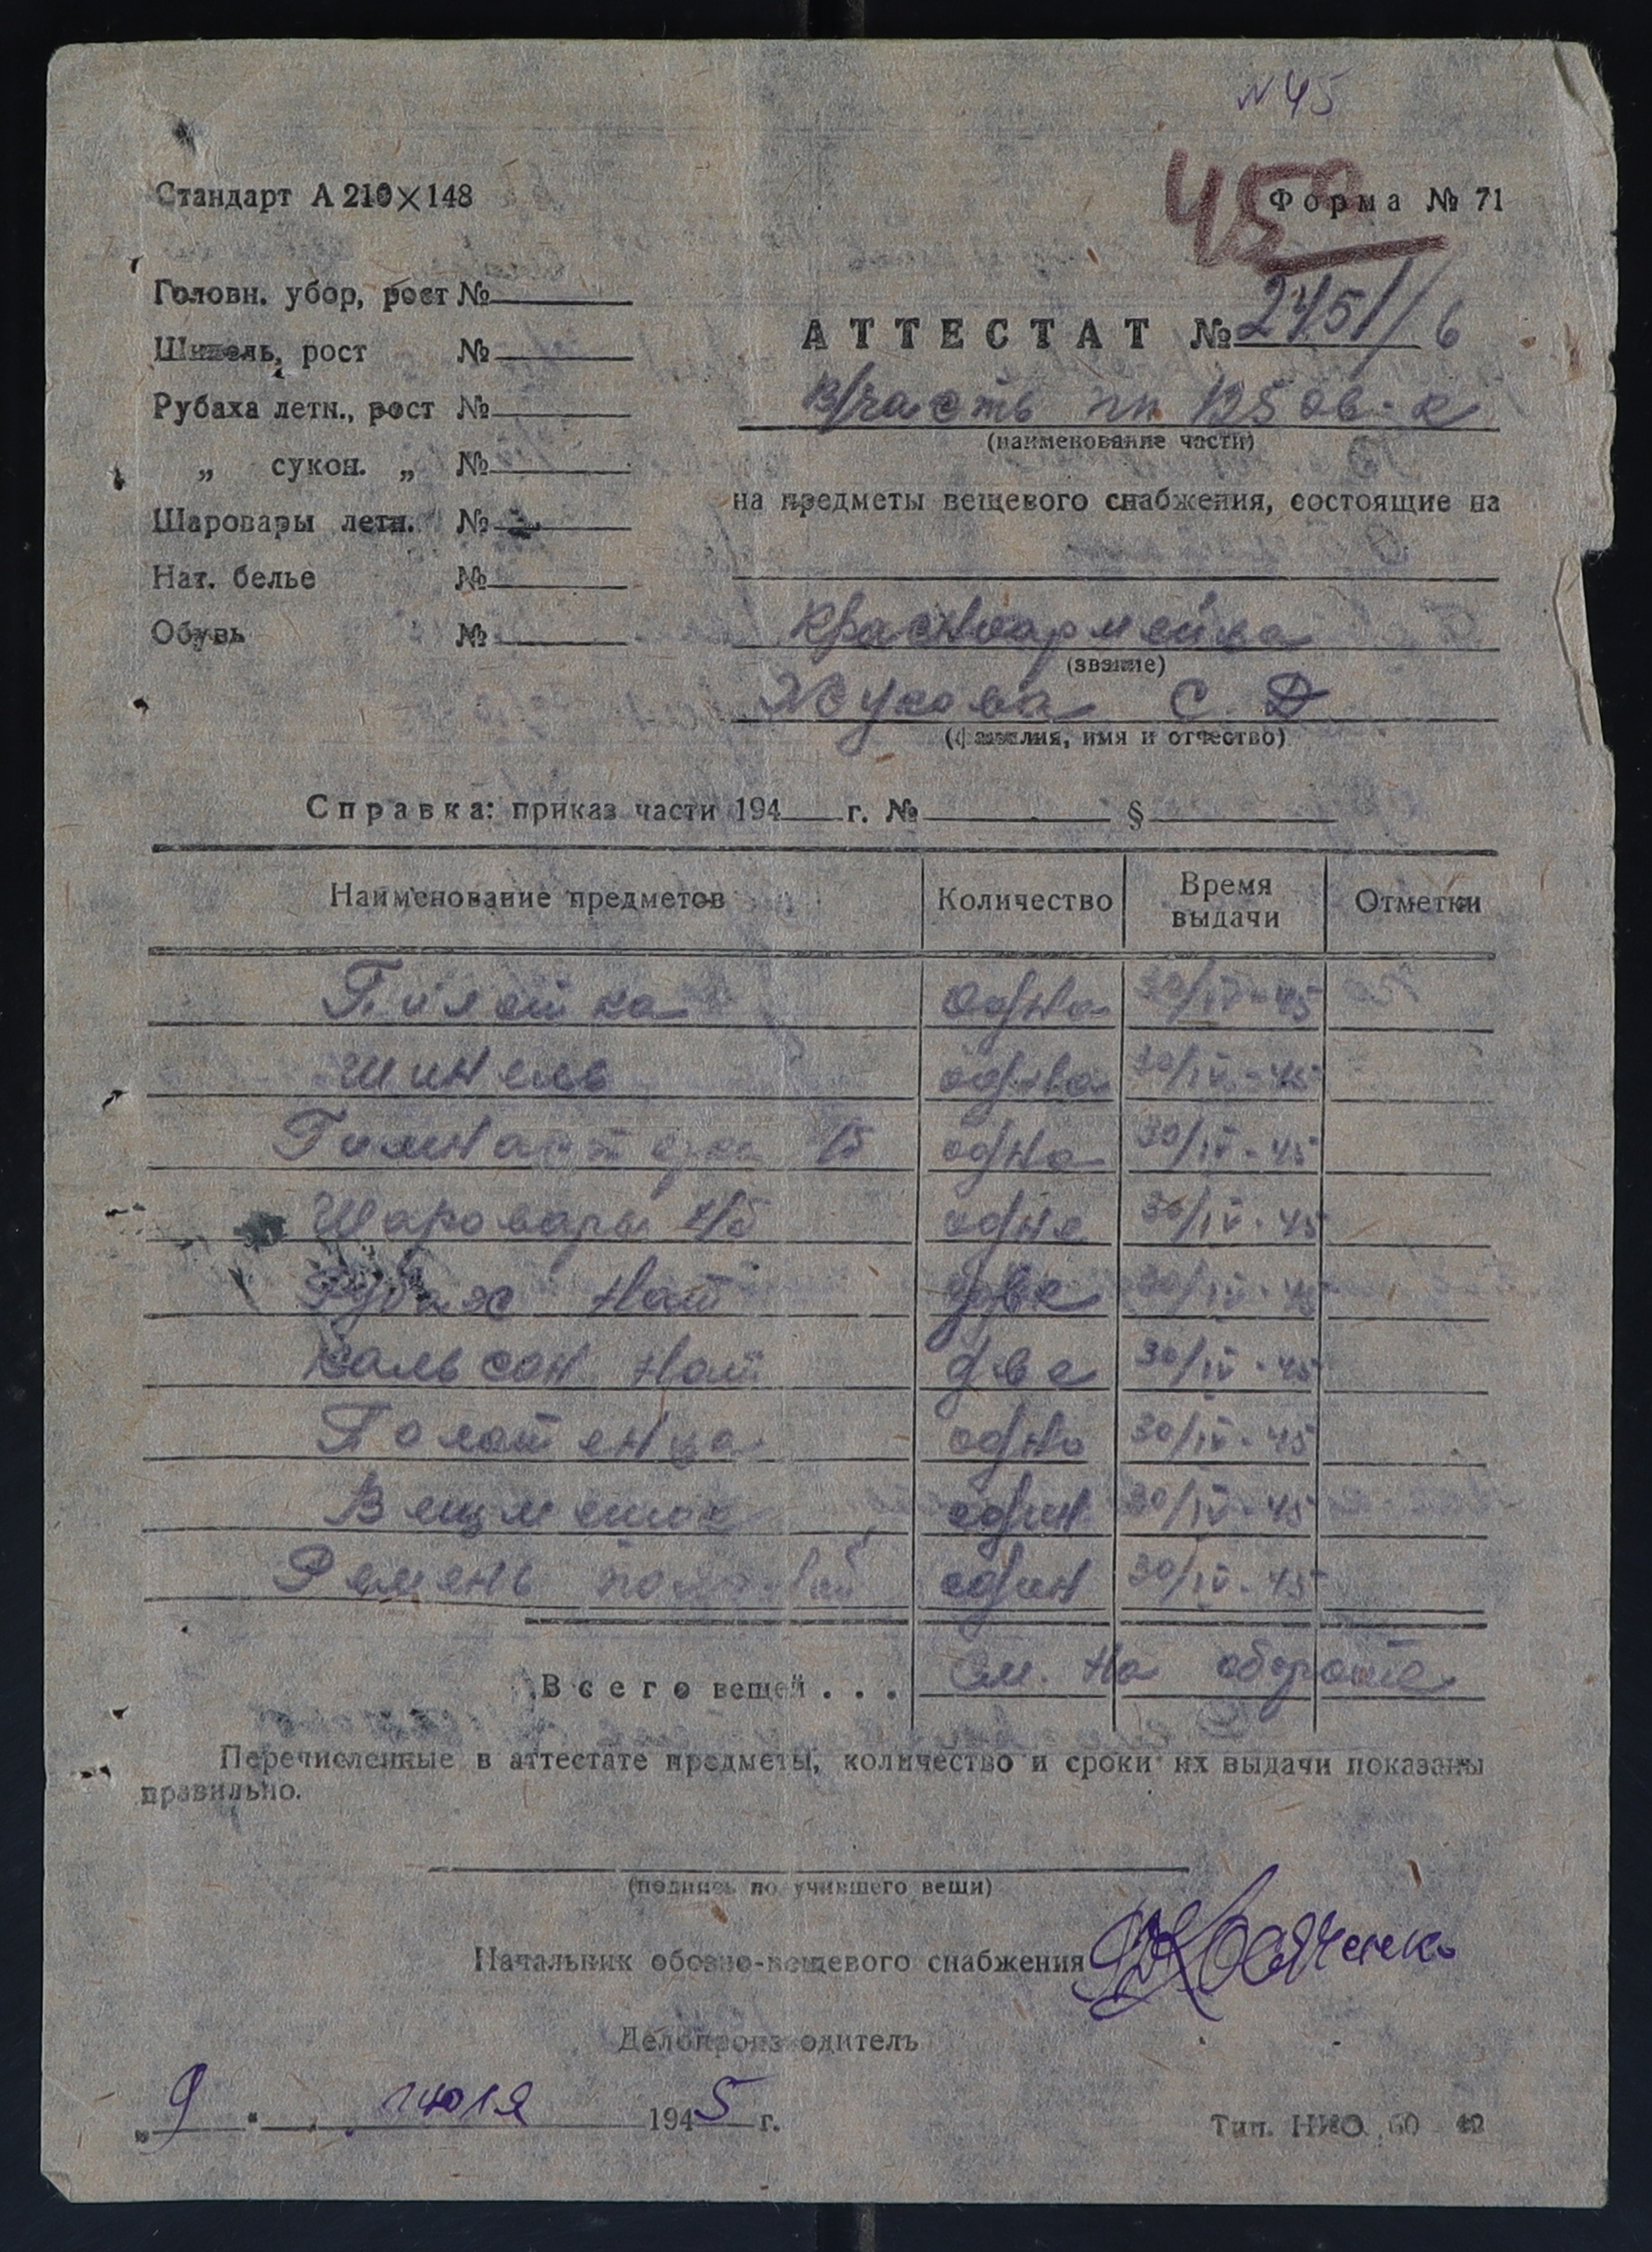 N 45
45
Стандарт А 210×148
Форма № 71
Головн. убор, рост №
Шинель, рост №
Рубаха летн., рост №
„ сукон. „ №
Шаровары летн. №
Нат. белье №
Обувь №
АТТЕСТАТ № 2451/6
В/часть пп 125
(наименование части)
на предметы вещевого снабжения, состоящие на
красноармейца
(звание)
Жукова С. Д
(фамилия, имя и отчество)
Справка: приказ части 194 г. № §
Наименование предметов Количество Время выдачи Отметки
Пилотка одна 30/IV-45
Шинель одна 30/IV-45
Гимнастерка одна 30/IV-45
Шаровары х/б одне 30/IV-45
Рубах нат две 30/IV-45
Кальсон нат две 30/IV-45
Полотенца одно 30/IV-45
Вещмешок один 30/IV-45
Ремень один 30/IV-45
Всего вещей . . . См. на обороте
Перечисленные в аттестате предметы, количество и сроки их выдачи показаны
правильно.
(подпись получившего вещи)
Начальник обозно-вещевого снабжения
Делопроизводитель
„ 9 “ июля 1945 г.
Тип. НКО